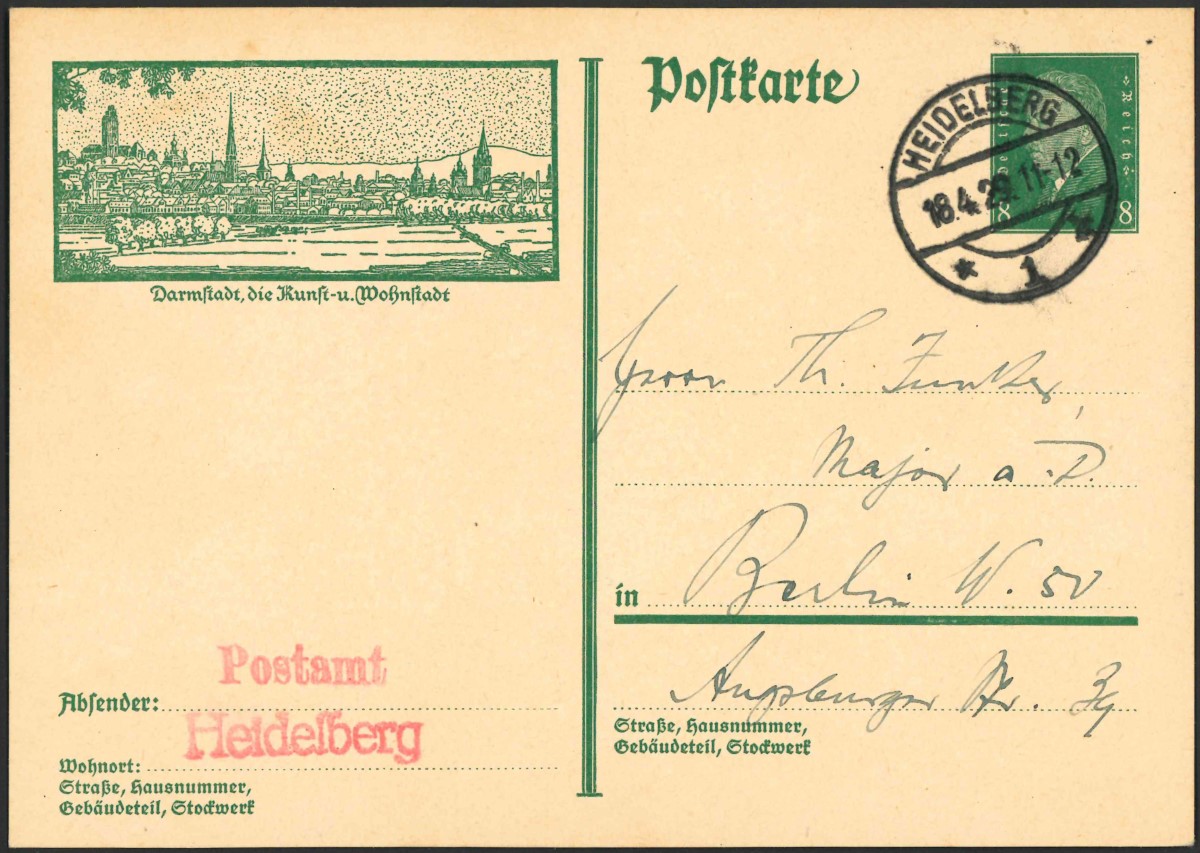 Postkarte
Deutsches Reich
8 8
HEIDELBERG
18.4.29. 11-12
* 1 *
Darmstadt, die Kunst-u. Wohnstadt
Herrn Th. Junker,
Major a. D.
in Berlin W. 50
Augsburger Str.
Straße, Hausnummer,
Gebäudeteil, Stockwerk
Postamt
Heidelberg
Absender:
Wohnort:
Straße, Hausnummer,
Gebäudeteil, Stockwerk